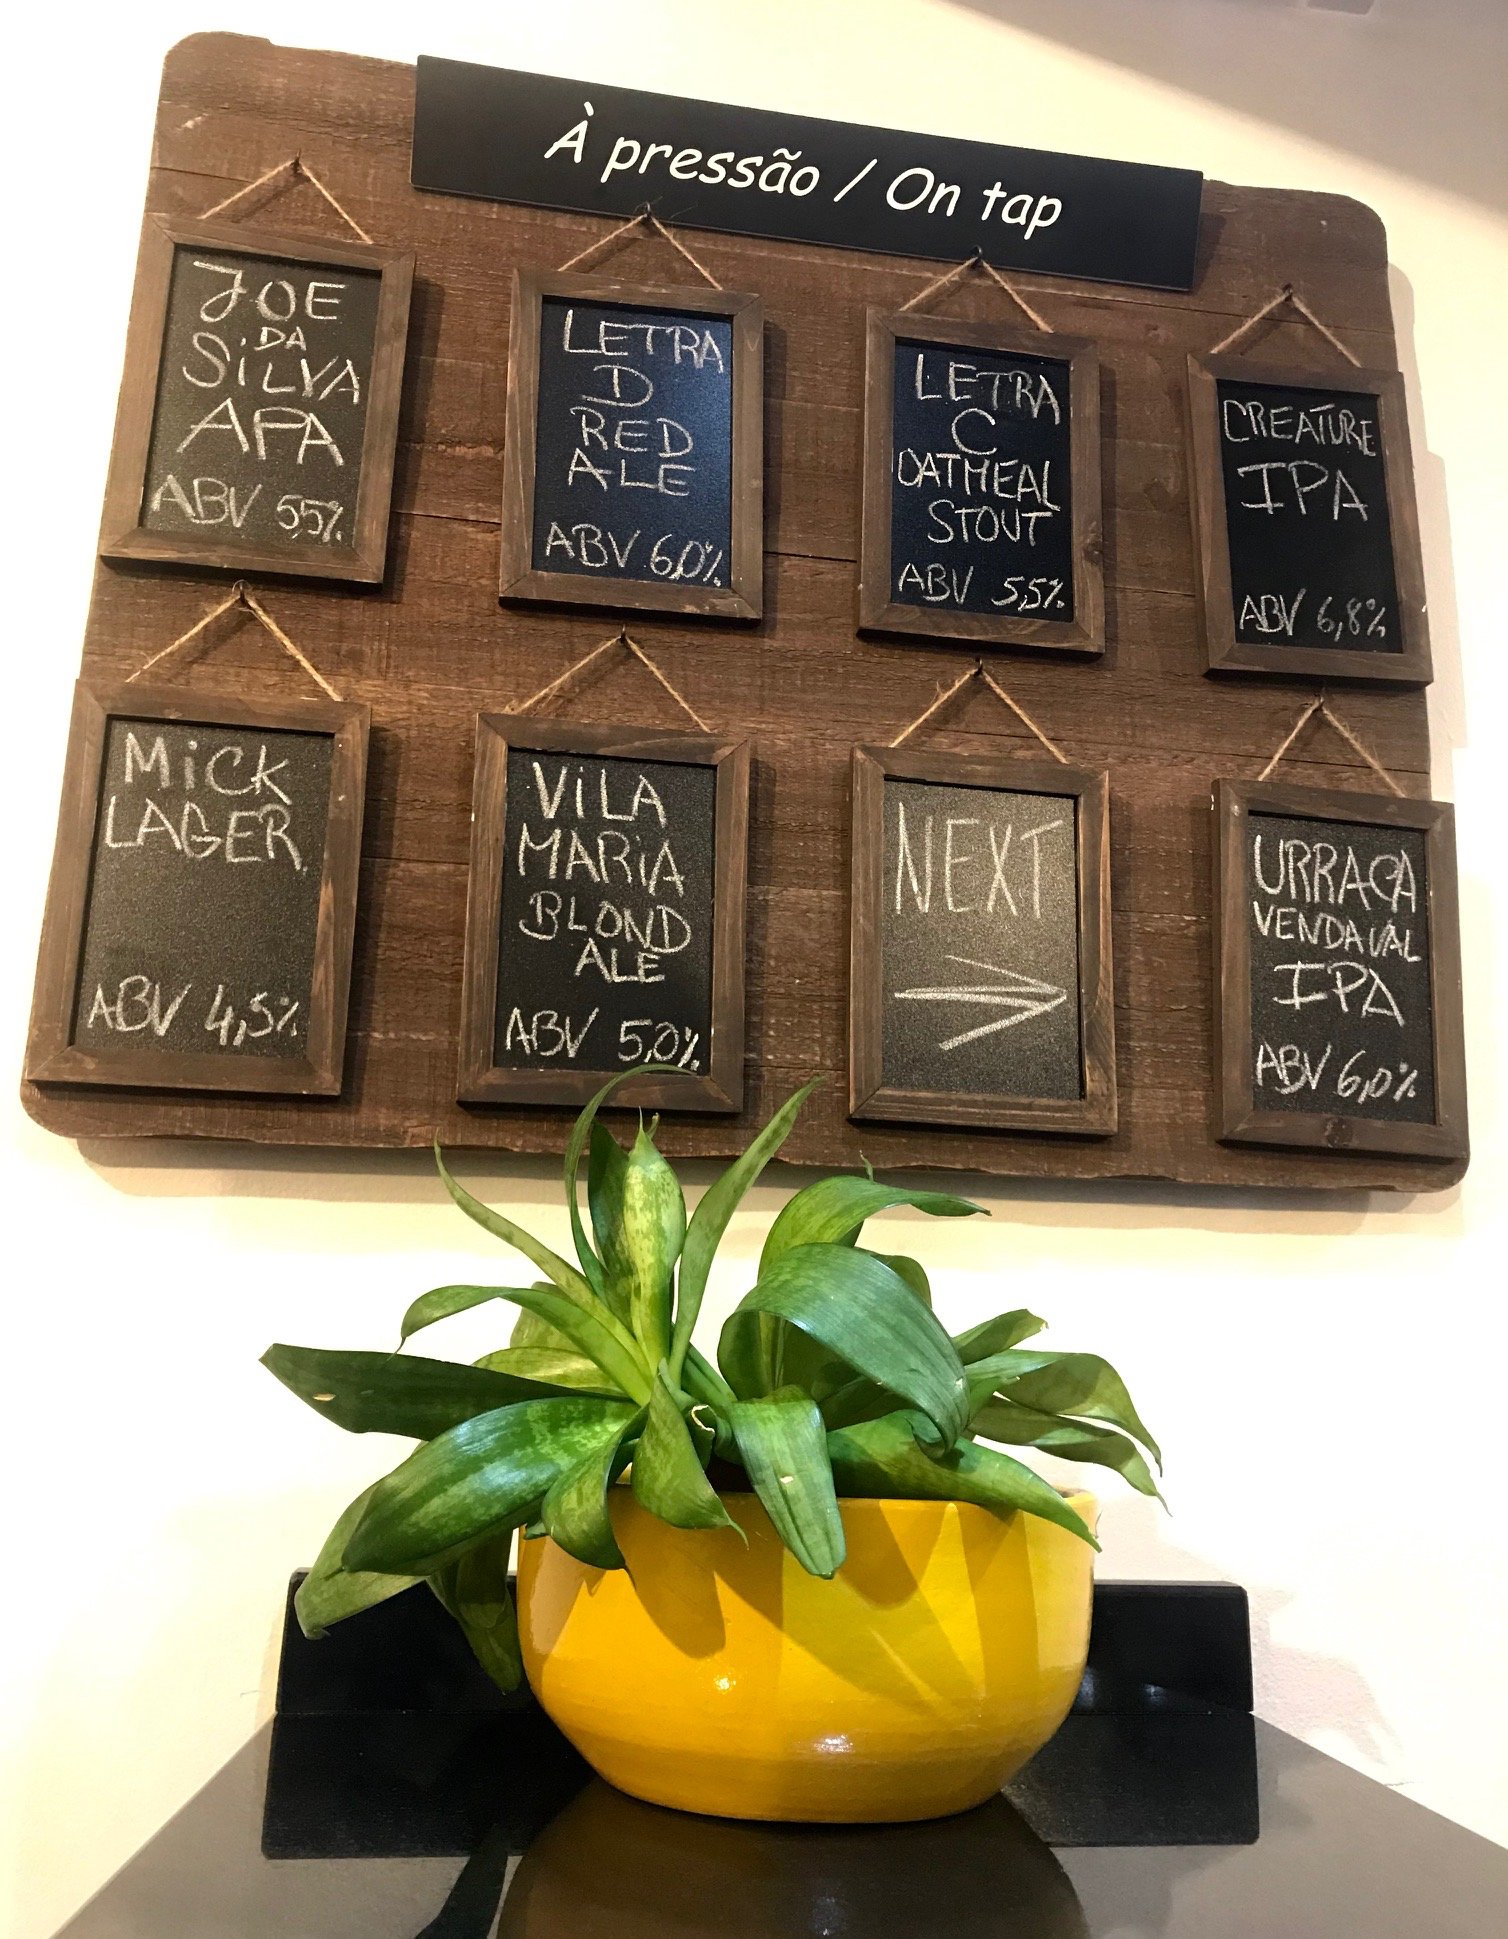 À pressão / On tap
JOE
DA
SiLVA
APA
ABV 5,5%
LETRA
D
RED
ALE
ABV 6,0%
LETRA
C
OATMEAL
STOUT
ABV 5,5%
CREATURE
IPA
ABV 6,8%
MiCK
LAGER
ABV 4,5%
ViLA
MARiA
BLOND
ALE
ABV 5,0%
NEXT
URRACA
VENDAVAL
IPA
ABV 6,0%